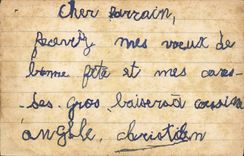 cher parrain,
recevez mes vœux de
bonne fête et mes cares-
-ses. gros baisers à
angèle, christian